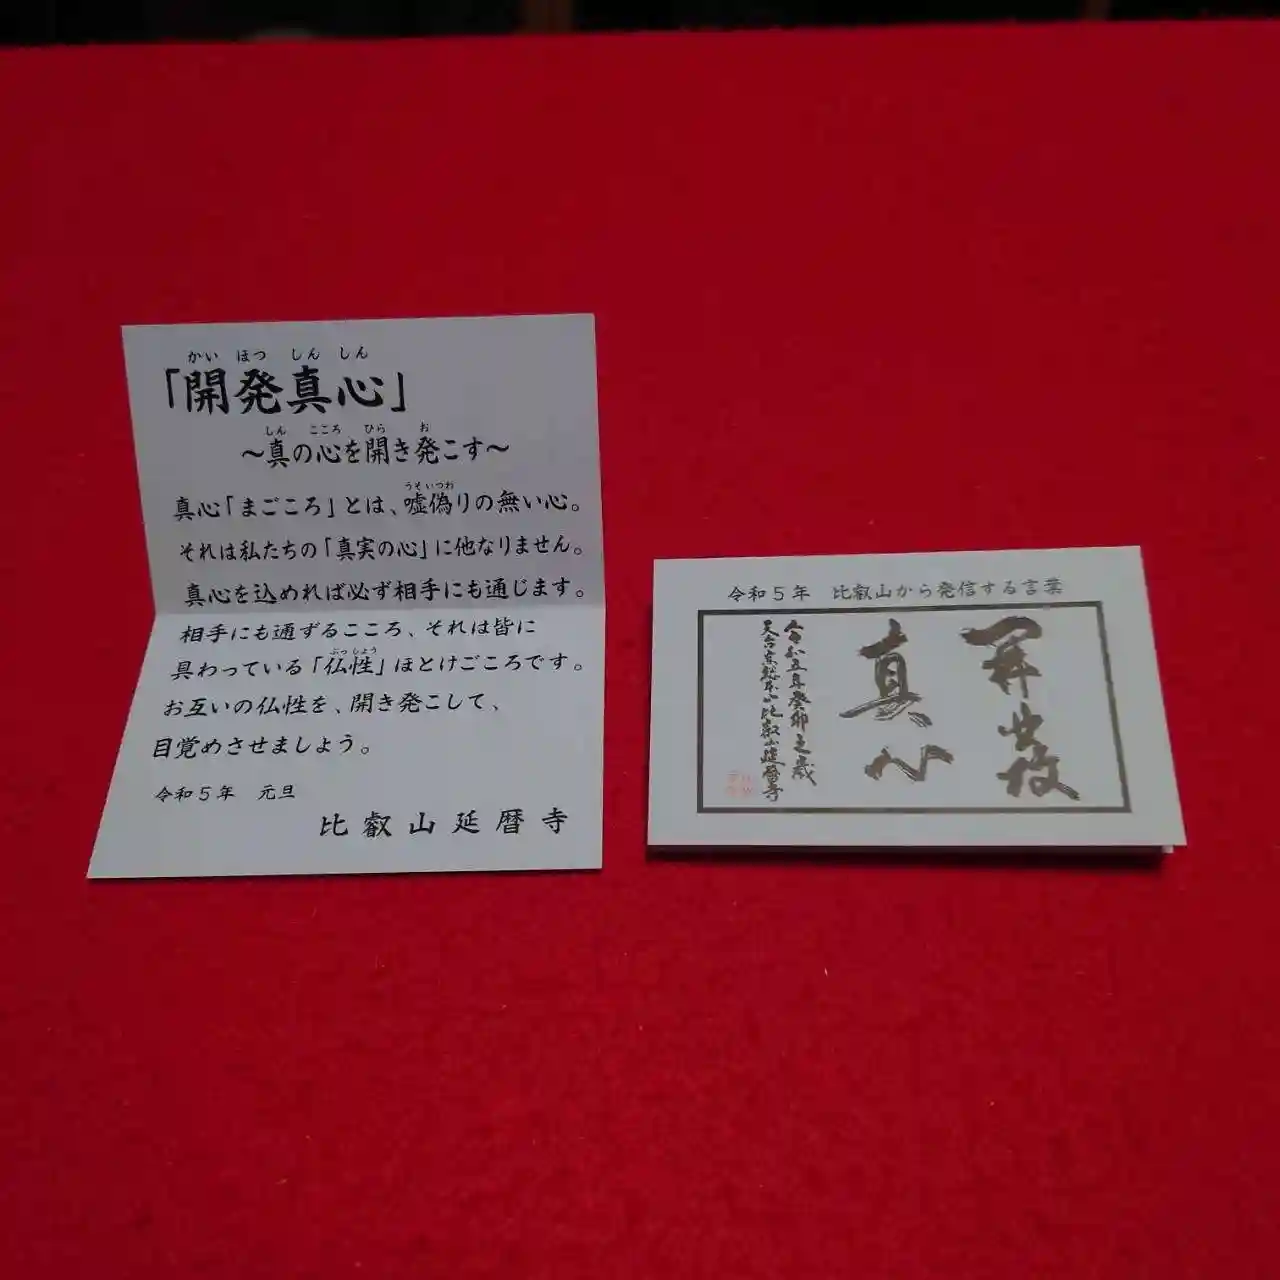 かい ほつ しん しん
「開発真心」
しん こころ ひら お
〜真の心を開き発こす〜
うそいつわ
真心「まごころ」とは、嘘偽りの無い心。
それは私たちの「真実の心」に他なりません。
真心を込めれば必ず相手にも通じます。
相手にも通ずるこころ、それは皆に
ぶっしょう
具わっている「仏性」ほとけごころです。
お互いの仏性を、開き発こして、
目覚めさせましょう。
令和5年 元旦
比叡山延暦寺
令和5年 比叡山から発信する言葉
開發
真心
令和五年癸卯之歳
天台宗総本山比叡山延暦寺